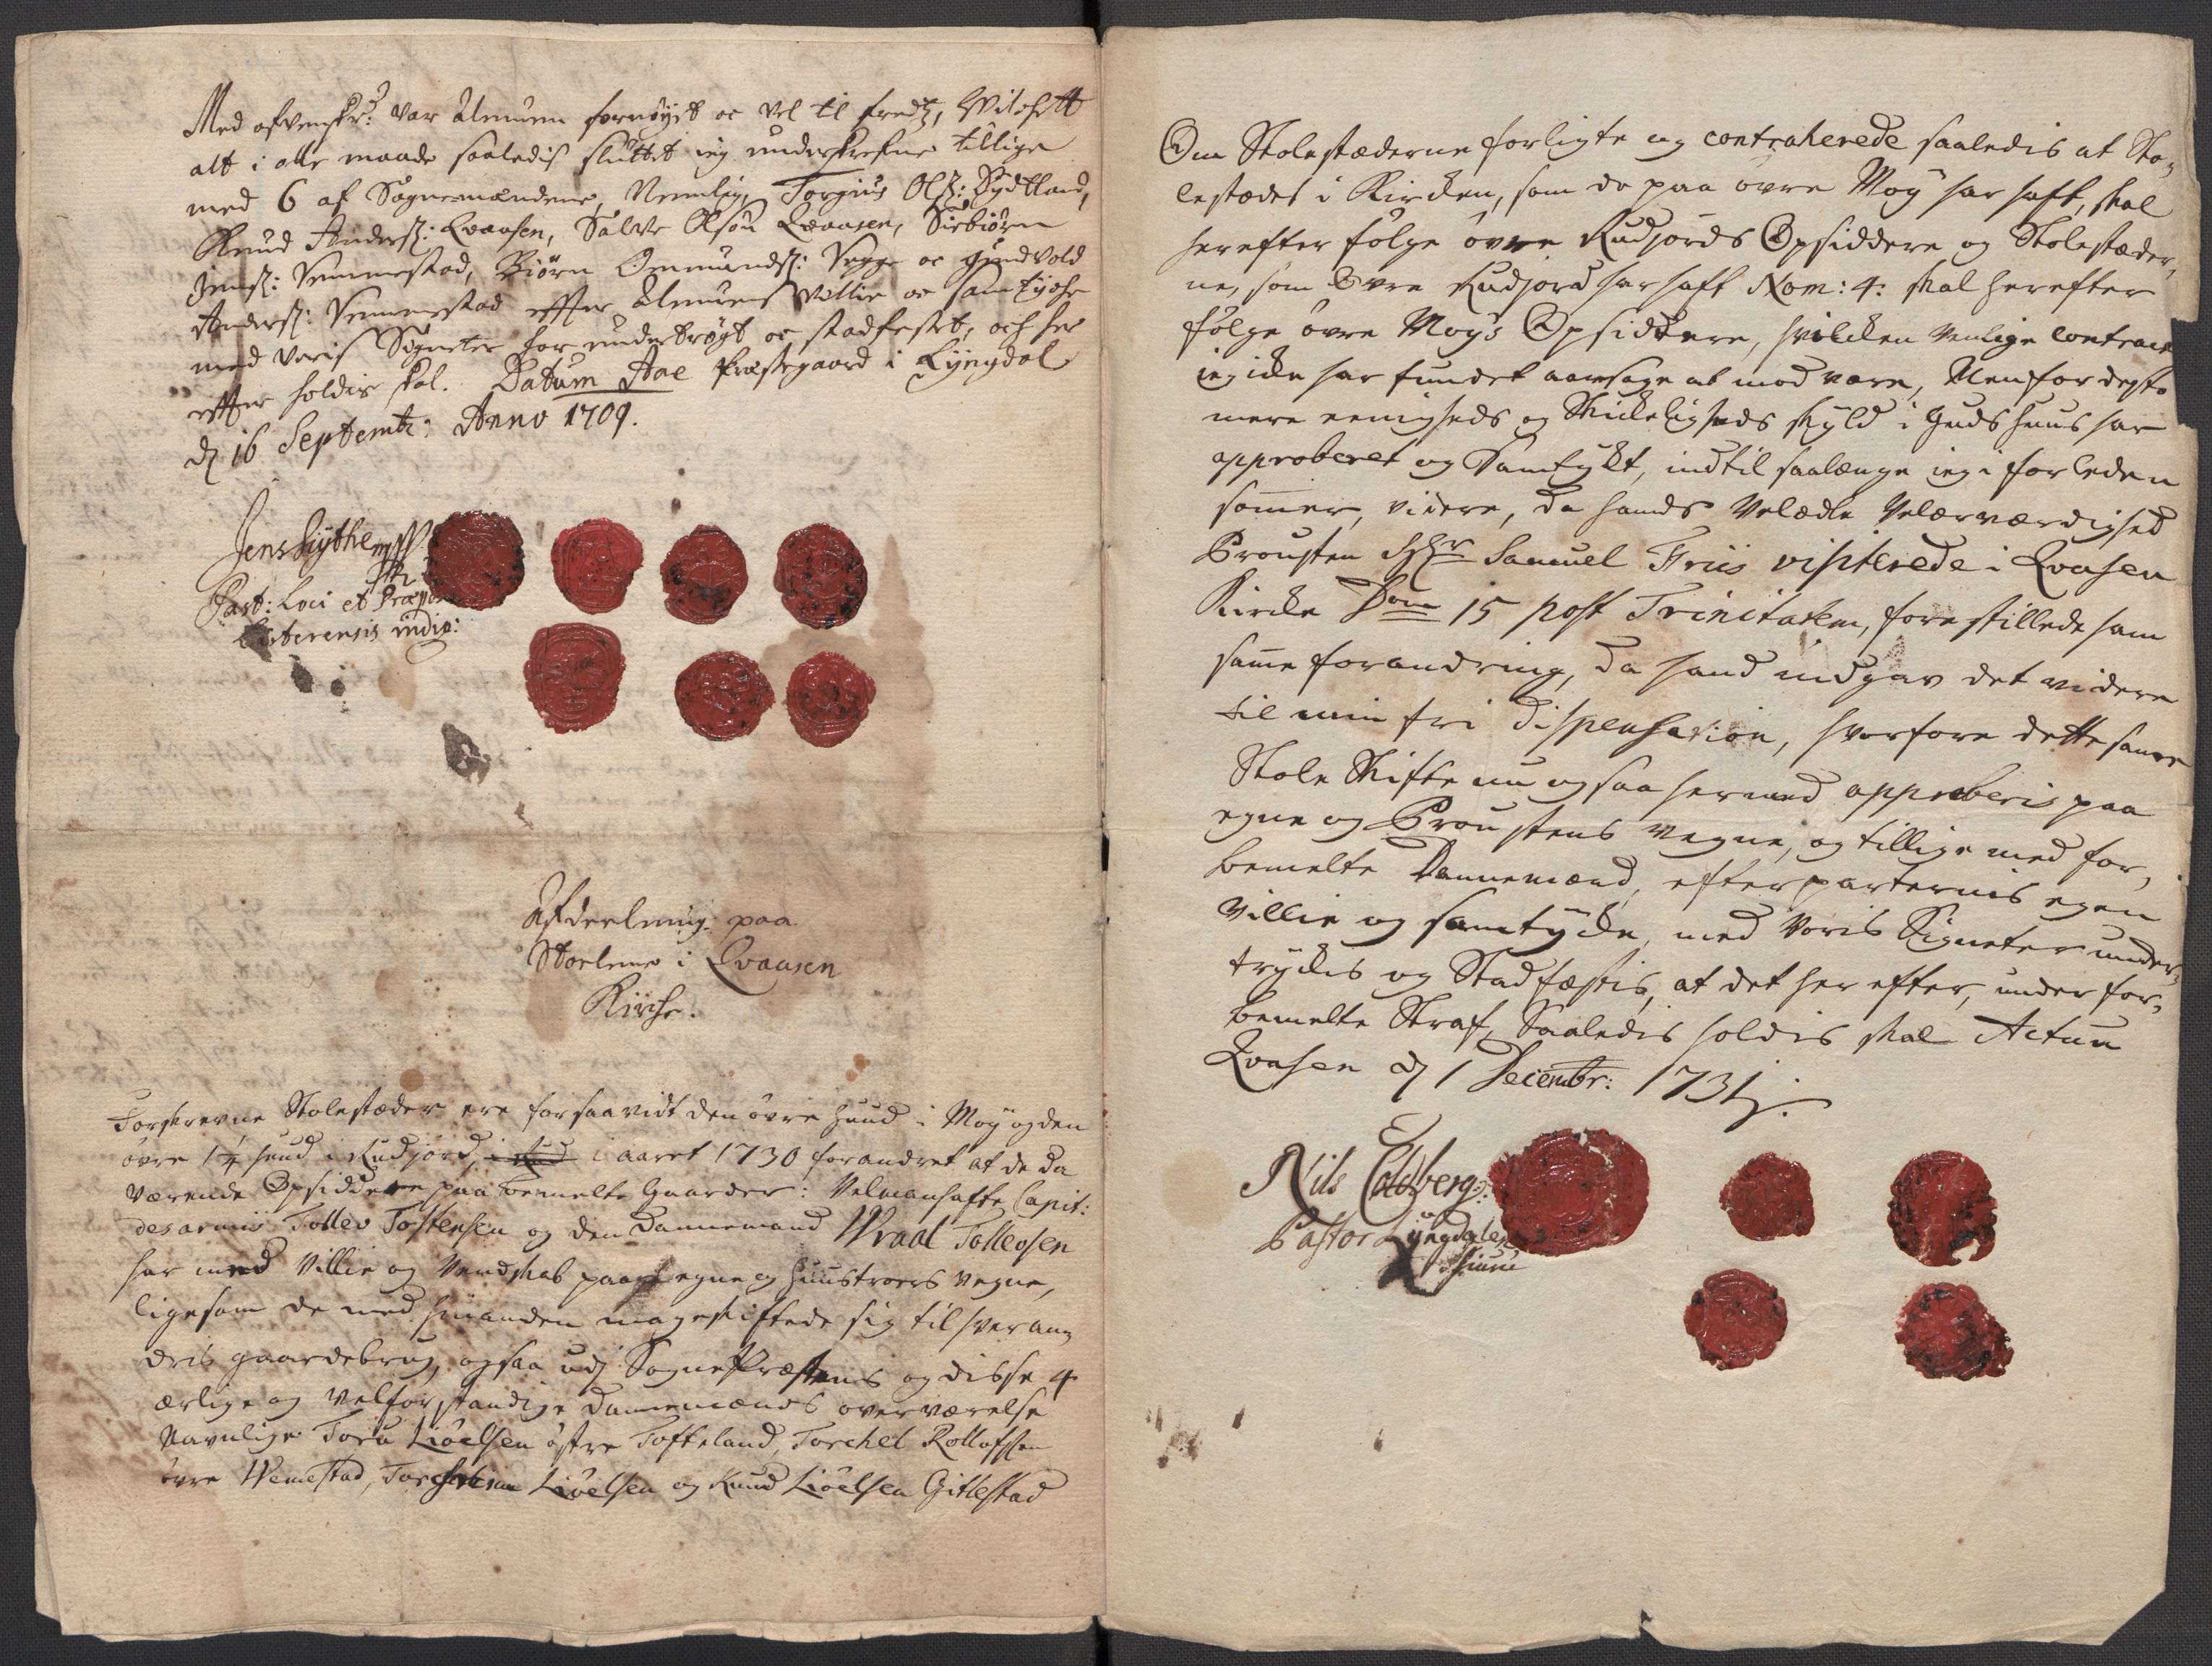 Med ofvenskr: var Almuen fornöyet oc vel til fredtz, Hvilchett
alt i alle maade saaledis sluttet ieg underskrefne tillige
med 6 af Sognemændene, Nemlig, Torgius Olß: Sydtland,
Knud Anderß: Qvaasen, Salve Olsön Qvaasen, Sirbiörn
Jenß: Vemmestad, Biörn Omundß: Vegge oc Gundvold
Anderß: Vemmestad effter Almuens villie oc samtÿche
med voris Signeter har undertrögt oc stadfestet, och her
effter holdis skal. Datum Aae Præstegaard i Lÿngdal
dj 16 Septembr: Anno 1709.
Jens Lijthe
Past: Loci et Præpos
Listerensis indig:
Afdeelning paa
Stoelene i Qvaasen
Kirche.
Forskrevne Stolestæder ere forsaavidt den övre Huud i Moÿ og den
övre 1¼ huud i Rudjord, i Rud i aaret 1730 forandret af de da
værende Opsiddere paa bemelte Gaarder: Velmanhafte Capit:
des armis Tollev Tostensen og den Dannemand Wraal Tollevsen
har med Villie og Vendskab paa egne og Huustroers vegne,
ligesom de med hinanden mageskiftede sig til hver an¬
dris gaardebrug, ogsaa udj SognePræstens og disse 4
ærlige og velforstandige Dannemænds overværelse
Navnlige Tore Liöelsen östre Tofteland, Torchel Rollofsen
övre Wemestad, Torchel Liöelsen og Knud Liöelsen Gitlestad
Om Stolestæderne forligte og contraherede saaledis at Sto¬
lestædet i Kircken, som de paa övre Moÿ har haft, skal
herefter fölge övre Rudjords Opsiddere og Stolestæder¬
ne, som Övre Rudjord har haft Nom: 4: skal herefter
fölge övre Moy's Opsiddere, hvilcken venlige contract
ieg icke har fundet aarsage at mod være, Men for desto
mere eenigheds og Skickeligheds skyld i Guds huus har
approberet og Samtykt, indtil saalænge ieg i forleden
sommer, videre, da hands Velædle Velærværdighed
Prousten Hr Samuel Friis visiterede i Qvaasen
Kircke Dom 15 post Trinitatem, forestillede ham
samme forandring, da hand indgav det videre
til min fri dispensation, hvorfore dette samme
Stole Skifte nu ogsaa hermed approberis paa
egne og Proustens vegne, og tillige med for¬
bemelte Dannemænd, efter parternis egen
Villie og samtÿcke, med voris Signeter under¬
trÿckes og Stadfæstis, at det her efter, under for¬
bemelte Straf, Saaledis holdis skal Actum
Qvaasen dj 1 Decembr: 1731.
Nils Coldberg:
Pastor Lÿngdalens